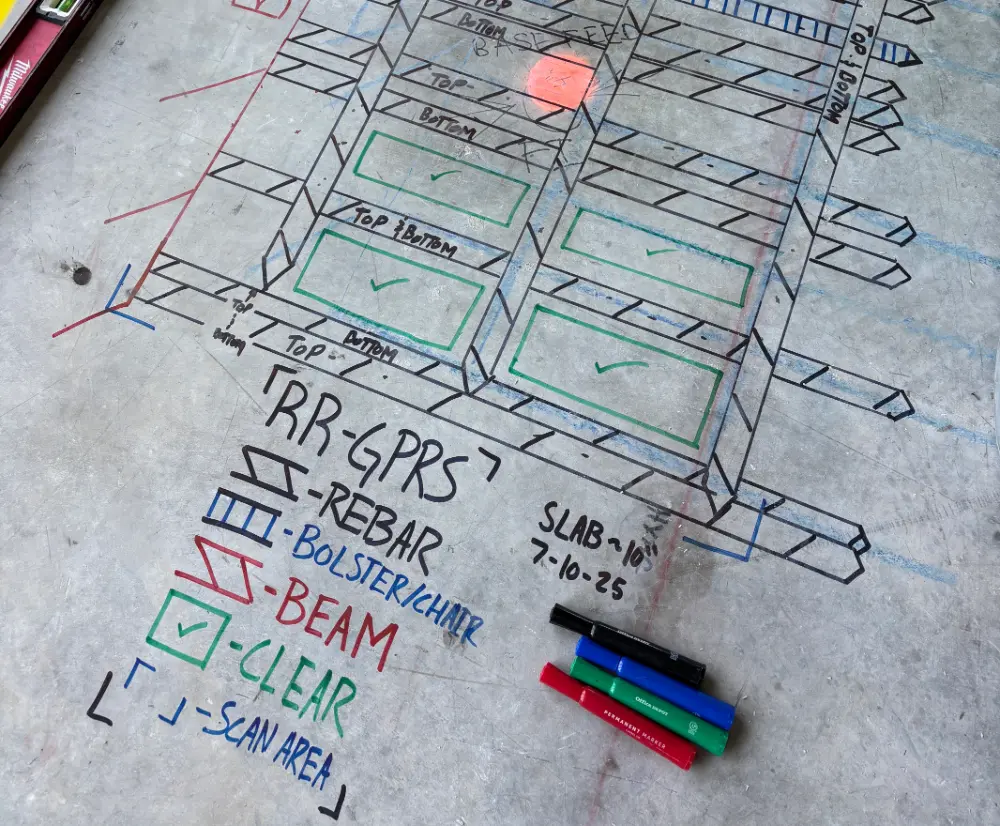 TOP
BOTTOM
BASE FEED
TOP
BOTTOM
TOP & BOTTOM
TOP & BOTTOM
TOP
BOTTOM
BOTTOM
TOP
RR-GPRS
-REBAR
-BOLSTER/CHAIR
-BEAM
-CLEAR
-SCAN AREA
SLAB ~ 10"
7-10-25
Milwaukee
Office DEPOT
PERMANENT MARKER